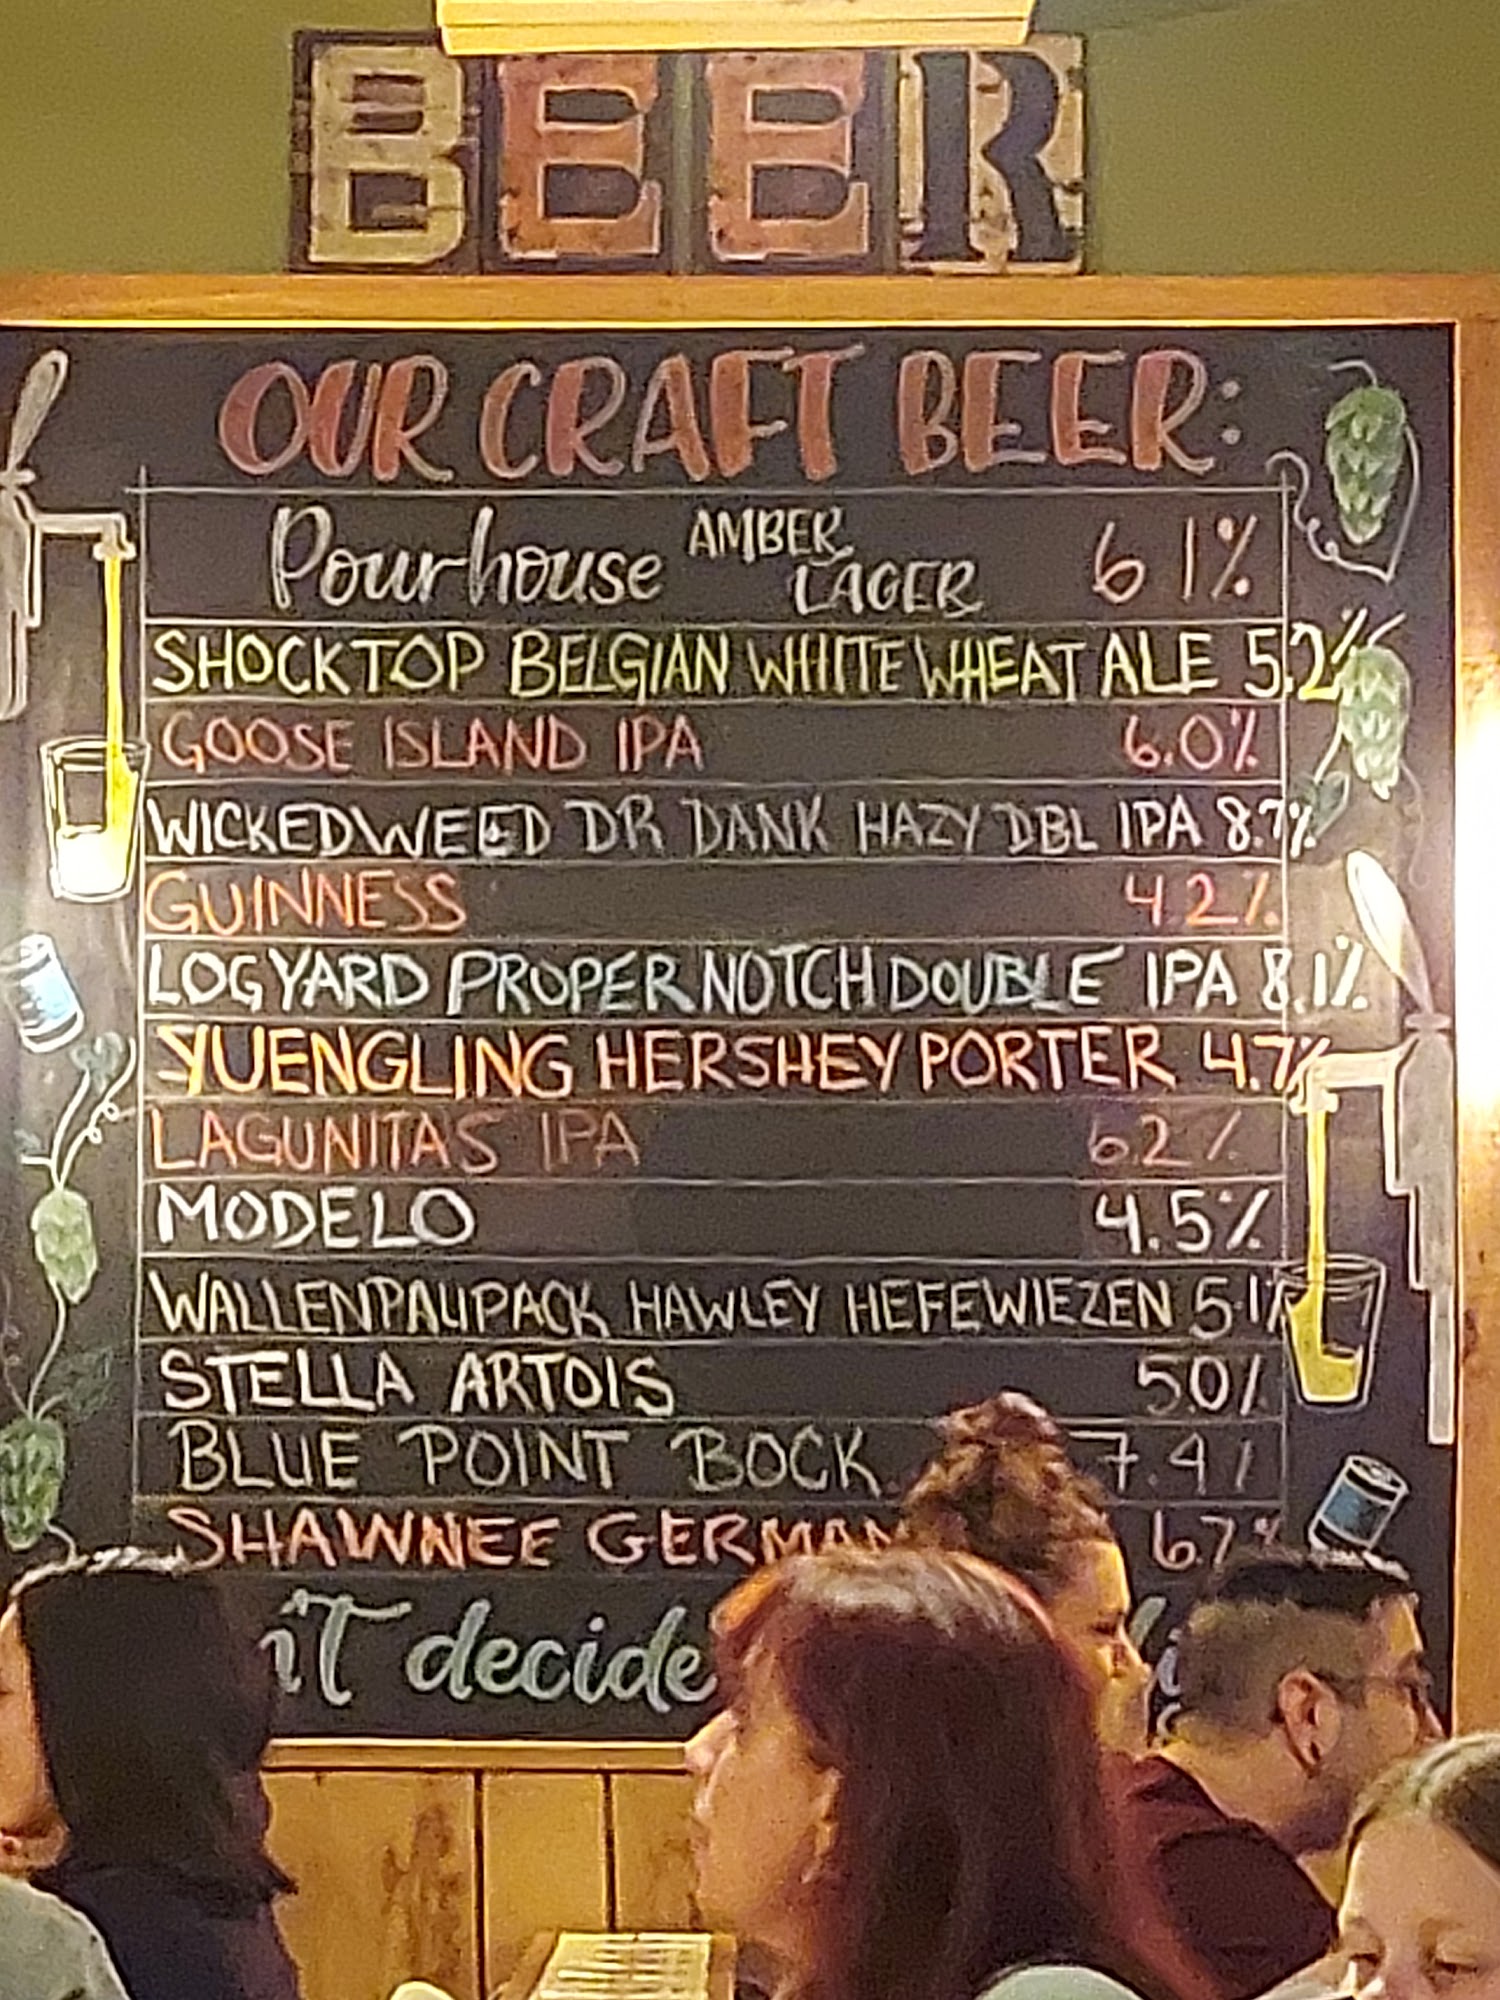 BEER
OUR CRAFT BEER:
Pourhouse AMBER LAGER 6 1%
SHOCKTOP BELGIAN WHITE WHEAT ALE 5.2%
GOOSE ISLAND IPA 6.0%
WICKEDWEED DR DANK HAZY DBL IPA 8.7%
GUINNESS 4.2%
LOGYARD PROPER NOTCH DOUBLE IPA 8.1%
YUENGLING HERSHEY PORTER 4.7%
LAGUNITAS IPA 6.2%
MODELO 4.5%
WALLENPAUPACK HAWLEY HEFEWIEZEN 5.1%
STELLA ARTOIS 5.0%
BLUE POINT BOCK 7.4%
SHAWNEE GERMAN 6.7%
decide